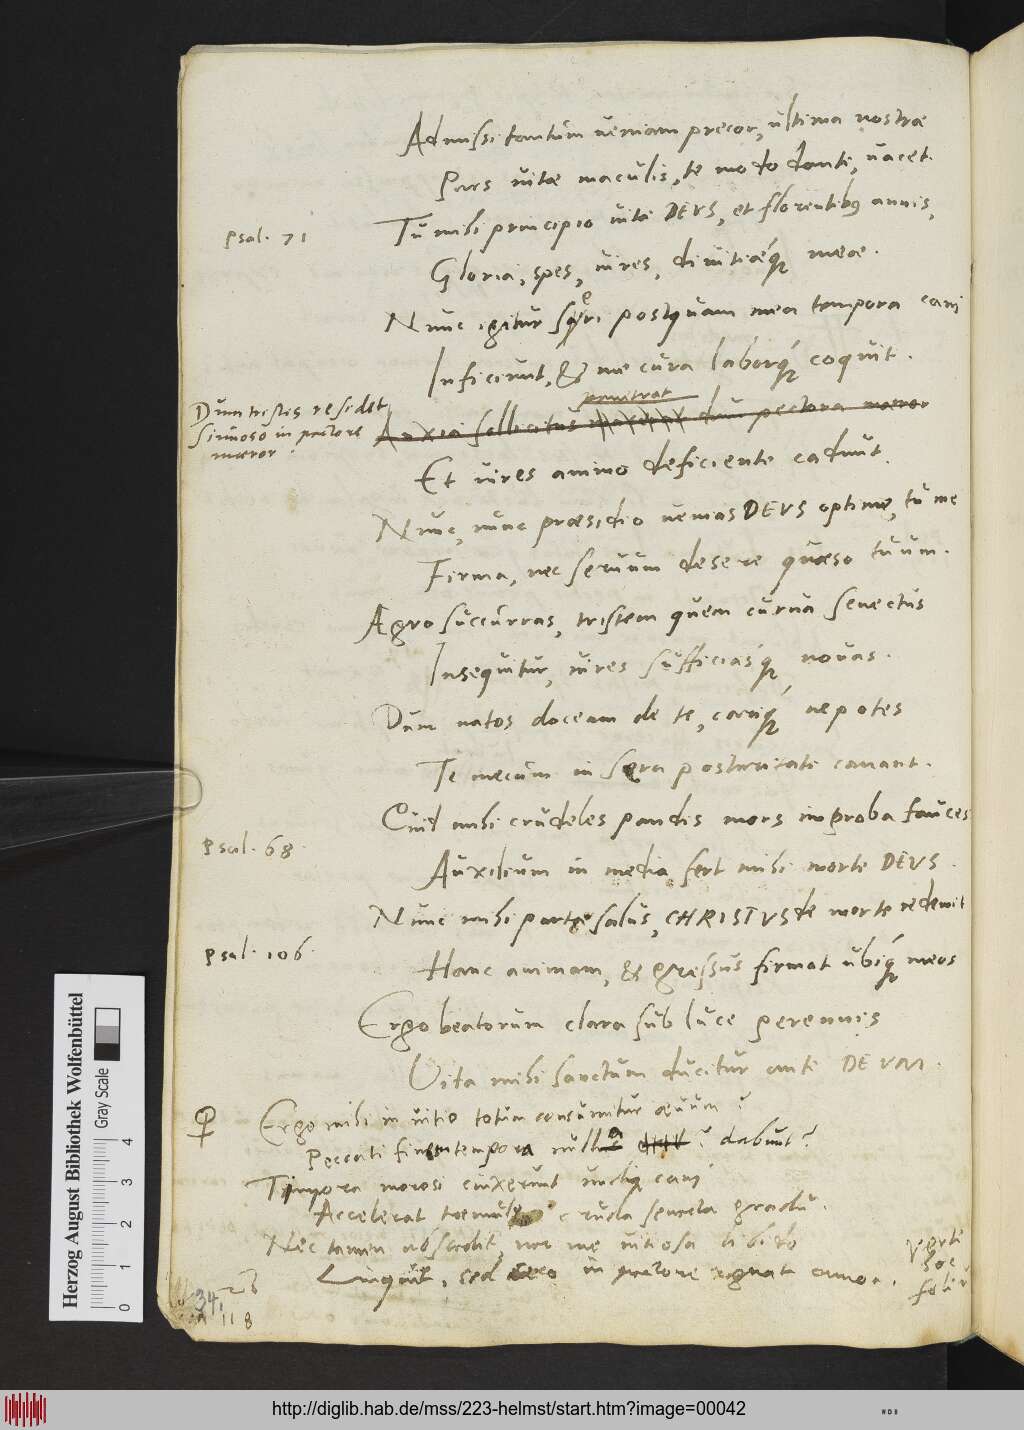 Admissi tantum veniam precor, ultima nostrae
Pars vitae maculis, te modo dante, vacet.
Psal. 71
Tu mihi principio vitae DEUS, et florentibus annis,
Gloria, spes, vires, divitiaeque meae.
Nunc igitur seri postquam mea tempora cani
Inficiunt, & me cura laborque coquit.
Dum tristis residet
sinuoso in pectore
maeror.
penetrat
Anxia sollicitus dum pectora maeror
Et vires animo deficiente cadunt.
Nunc, nunc praesidio venias DEUS optime, tu me
Firma, nec servum desere quaeso tuum.
Aegro succurras, tristem quem curva senectus
Insequitur, vires sufficiasque novas.
Dum natos doceam de te, carique nepotes
Te mecum in sera posteritate canant.
Quid mihi crudeles pandis mors improba fauces
Psal. 68.
Auxilium in media fert mihi morte DEUS.
Nunc mihi parta salus, CHRISTUS de morte redemit
Psal. 106.
Hanc animam, & gressus firmat ubique meos
Ergo beatorum clara sub luce perennis
Vita mihi sanctum ducitur ante DEUM.
Ergo mihi in vitio totum consumitur aevum?
Peccati finem tempora nulla dabunt?
Tempora morosi cinxerunt undique cani
Accelerat tremulo cruda senecta gradu.
Nec tamen abscedit, nec me vitiosa libido
Linquit, sed caeco in pectore regnat amor.
Verte
foliu
34.
118
Herzog August Bibliothek Wolfenbüttel
Gray Scale
0 1 2 3 4
http://diglib.hab.de/mss/223-helmst/start.htm?image=00042